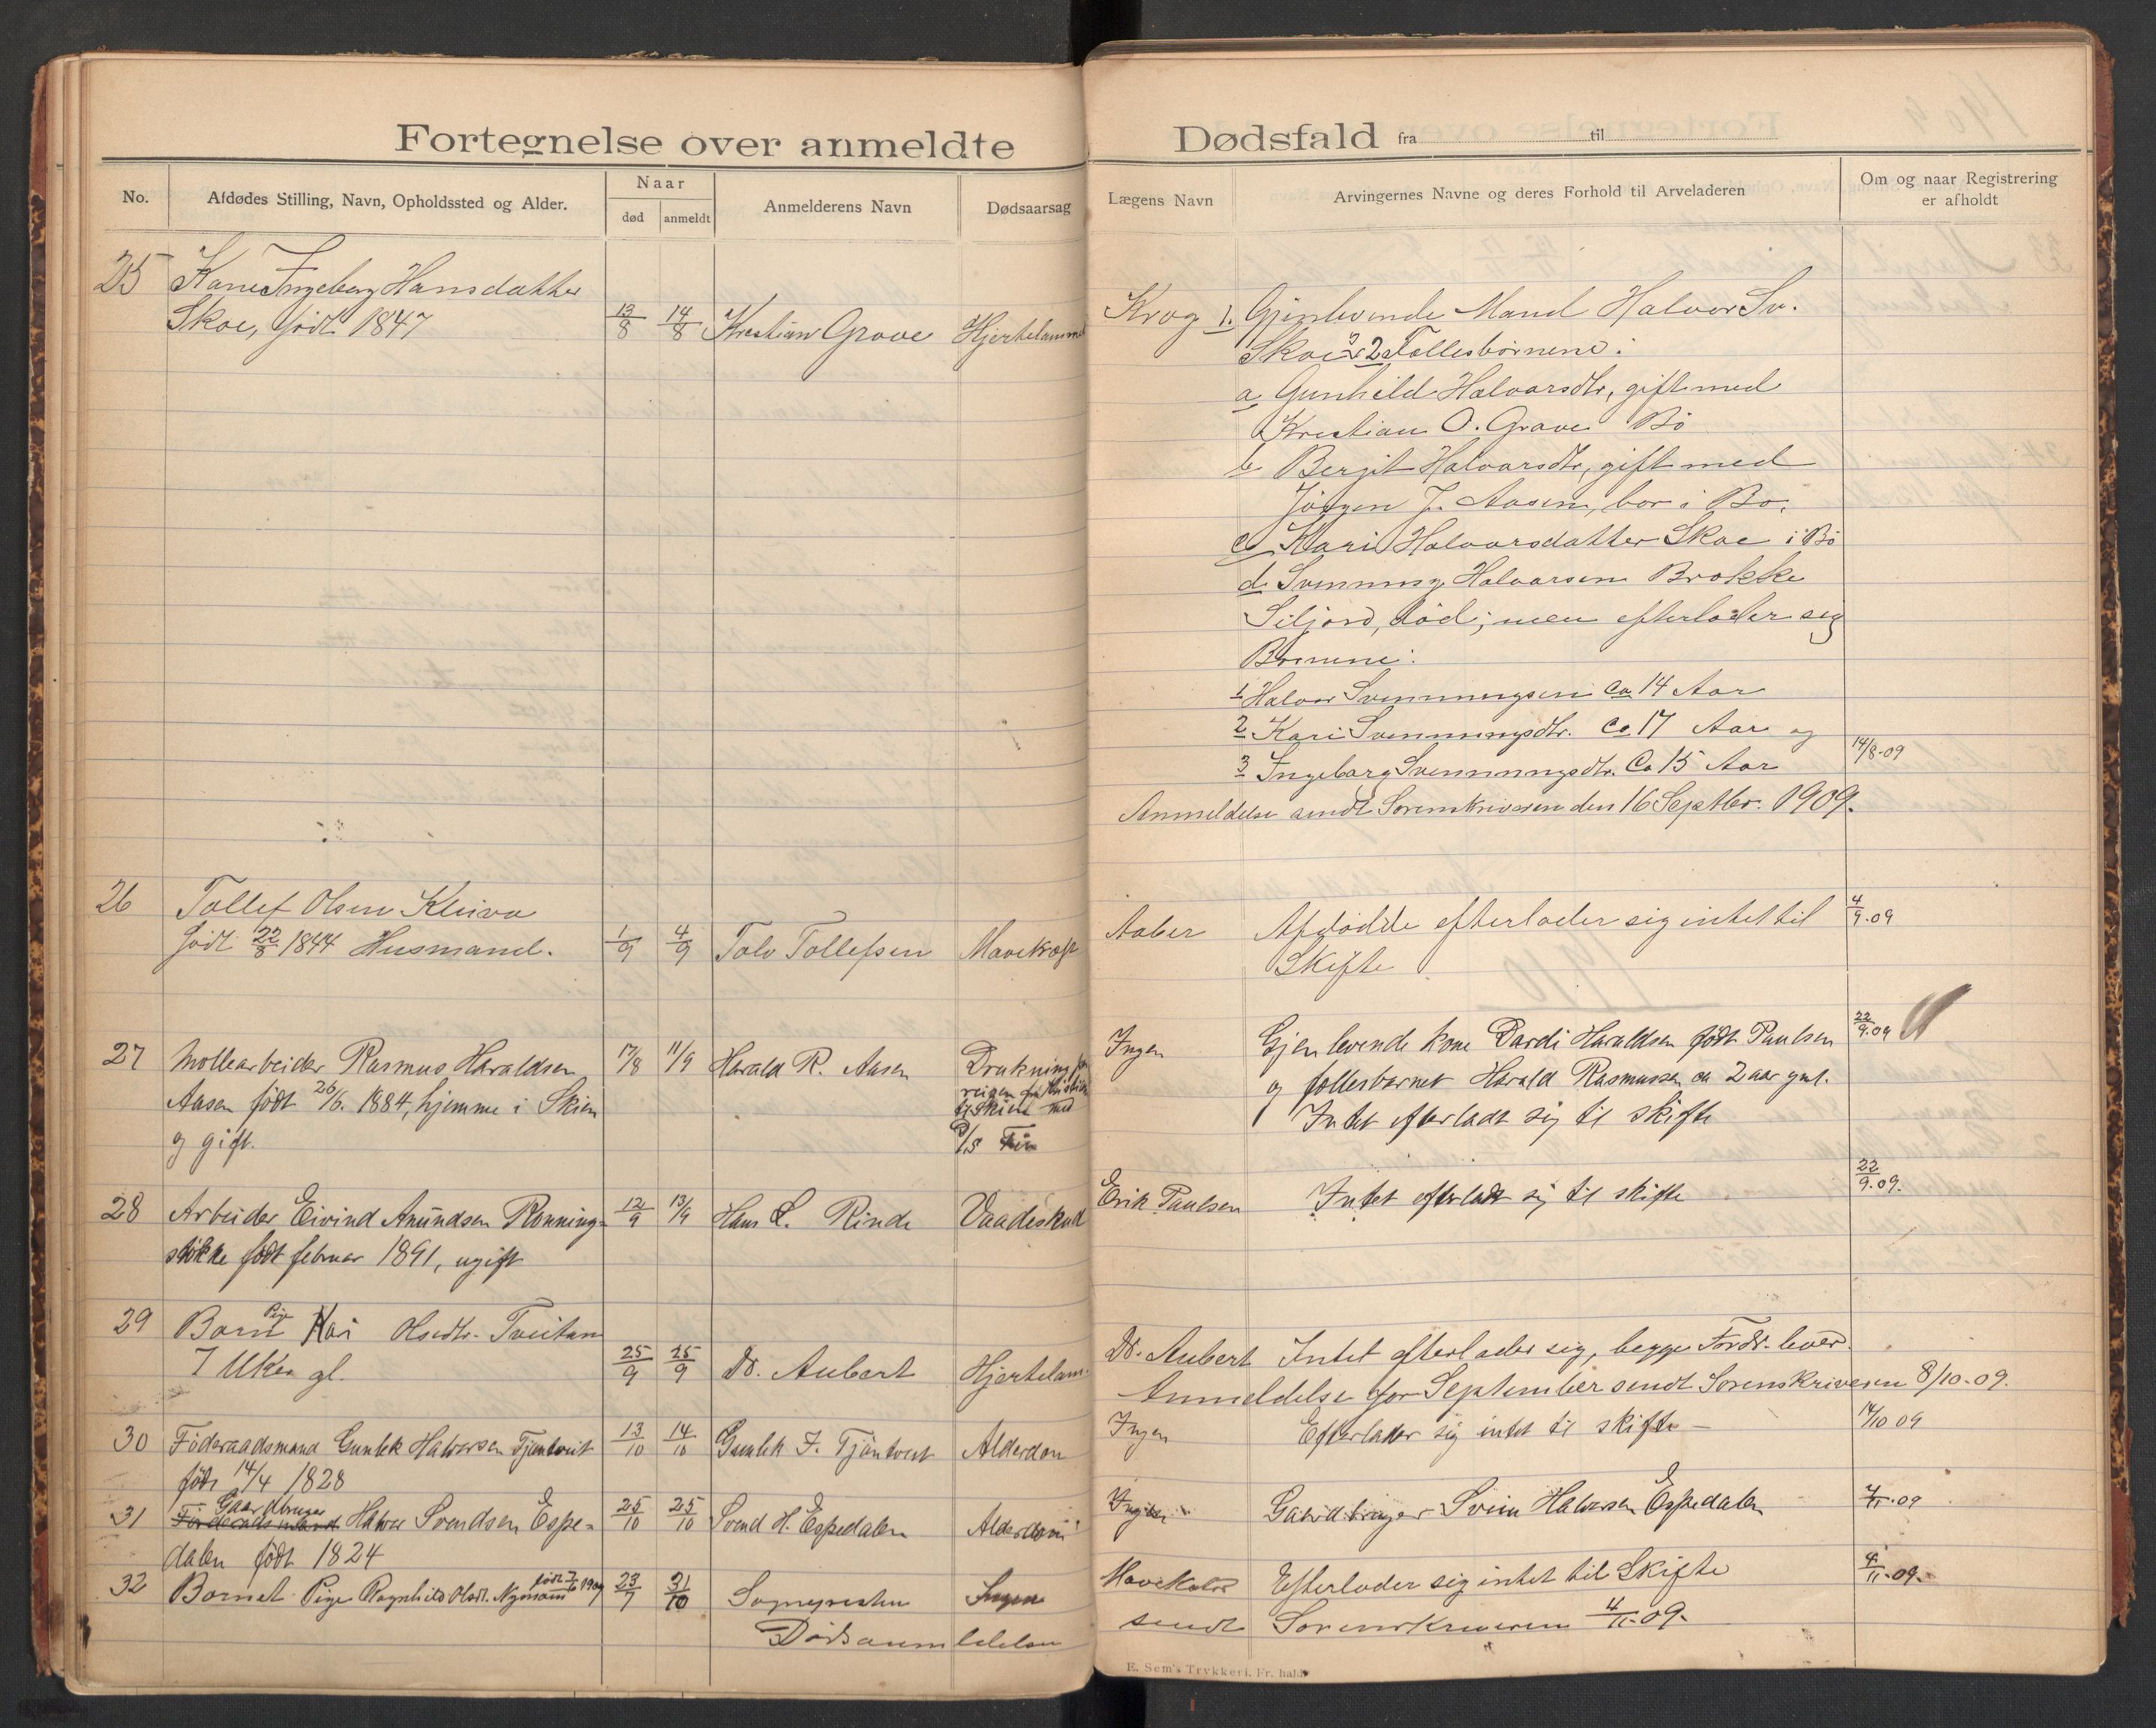 Fortegnelse over anmeldte Dødsfald fra til
No.
Afdødes Stilling, Navn, Opholdssted og Alder.
Naar
død anmeldt
Anmelderens Navn
Dødsaarsag
Lægens Navn
Arvingernes Navne og deres Forhold til Arveladeren
Om og naar Registrering
er afholdt
25 Kone Ingeborg Hansdatter
Skoe, født 1847 13/8 14/8 Kristian Grave Hjertelammel
Krog 1. Gjenlevende Mand Halvor Sv.
Skoe og 2 Fællesbørnene:
a Gunhild Halvorsdtr, gift med
Kristian O. Grave Bø
b Bergit Halvorsdtr, gift med
Jörgen J. Aasen, bor i Bø.
c Kari Halvorsdatter Skoe i Bø
d Svenning Halvorsen Brokke
Siljord, död, men efterlader sig
Børnene:
1 Halvor Svenningsen Ca 14 Aar
2 Kari Svenningsdtr. Ca 17 Aar og
3 Ingeborg Svenningsdtr. Ca 15 Aar 14/8-09
Anmeldelse sendt Sorenskriveren den 16 Septbr. 1909.
26 Tollef Olsen Kleiva
født 22/8 1844 Husmand. 1/9 4/9 Tolv Tollefsen Mavekræft
Aaber Afdødde efterlader sig intet til 4/9-09
Skifte
27 Møllearbeider Rasmus Haraldsen 17/8 11/9 Harald R. Aasen Drukning
Aasen født 26/6. 1884, hjemme i Skien
til Skien med
og gift. D/S
Ingen Gjenlevende kone Dardi Haraldsen født Paulsen 22/9.09
og fællesbarnet Harald Rasmussen ca 2 aar gml.
Intet efterladt sig til skifte
28 Arbeider Eivind Amundsen Rønning- 12/9 13/9 Hans L. Rinde Vaadeskud
støkke født februar 1891, ugift
Erik Paulsen Intet efterladt sig til skifte 22/9.09.
29 Barn Pige Kari Olsdtr. Tveitan
7 Uker gl. 25/9 25/9 Dr. Aubert Hjertelam.
Dr. Aubert Intet efterlader sig, begge Fordr. lever.
Anmeldelse for September sendt Sorenskriveren 8/10-09.
30 Föderaadsmand Gunlek Halvorsen Tjöntveit 13/10 14/10 Gunlek J. Tjöntveit Alderdom
født 14/4 1828
Ingen Efterlader sig intet til skifte – 14/10 09
31 Föderaadsmand Gaardbruger Halvor Svendsen Espe- 25/10 25/10 Svend H. Espedalen Alderdom
dalen født 1824
Ingen Gaardbruger Svein Halvorsen Espedalen
32 Barnet Pige Ragnhild Olsdt. Nymoen født 1909 23/7 31/10 Sognepresten Ingen
Dødsanmeldelsen
Efterlader sig intet til Skifte 4/11-09.
sendt Sorenskriveren 4/11-09.
E. Sem's Trykkeri. Fr. hald.